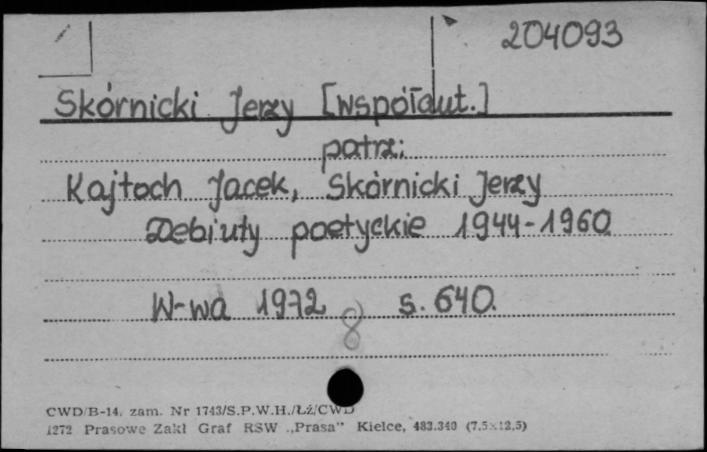 204093
Skórnicki Jerzy [współaut.]
patrz:
Kajtoch Jacek, Skórnicki Jerzy
Debiuty poetyckie 1944-1960
W-wa 1972 s. 640.
8
CWD/B-14. zam. Nr 1743/S.P.W.H./Łź/CWD
1272 Prasowe Zakł Graf RSW „Prasa” Kielce, 483.340 (7,5×12,5)